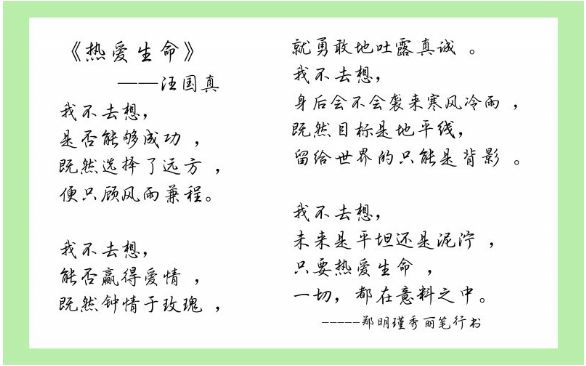 《热爱生命》
——汪国真
我不去想，
是否能够成功 ，
既然选择了远方 ，
便只顾风雨兼程。
我不去想，
能否赢得爱情 ，
既然钟情于玫瑰 ，
就勇敢地吐露真诚 。
我不去想，
身后会不会袭来寒风冷雨 ，
既然目标是地平线，
留给世界的只能是背影 。
我不去想，
未来是平坦还是泥泞 ，
只要热爱生命 ，
一切，都在意料之中。
-----郑明瑾秀丽笔行书